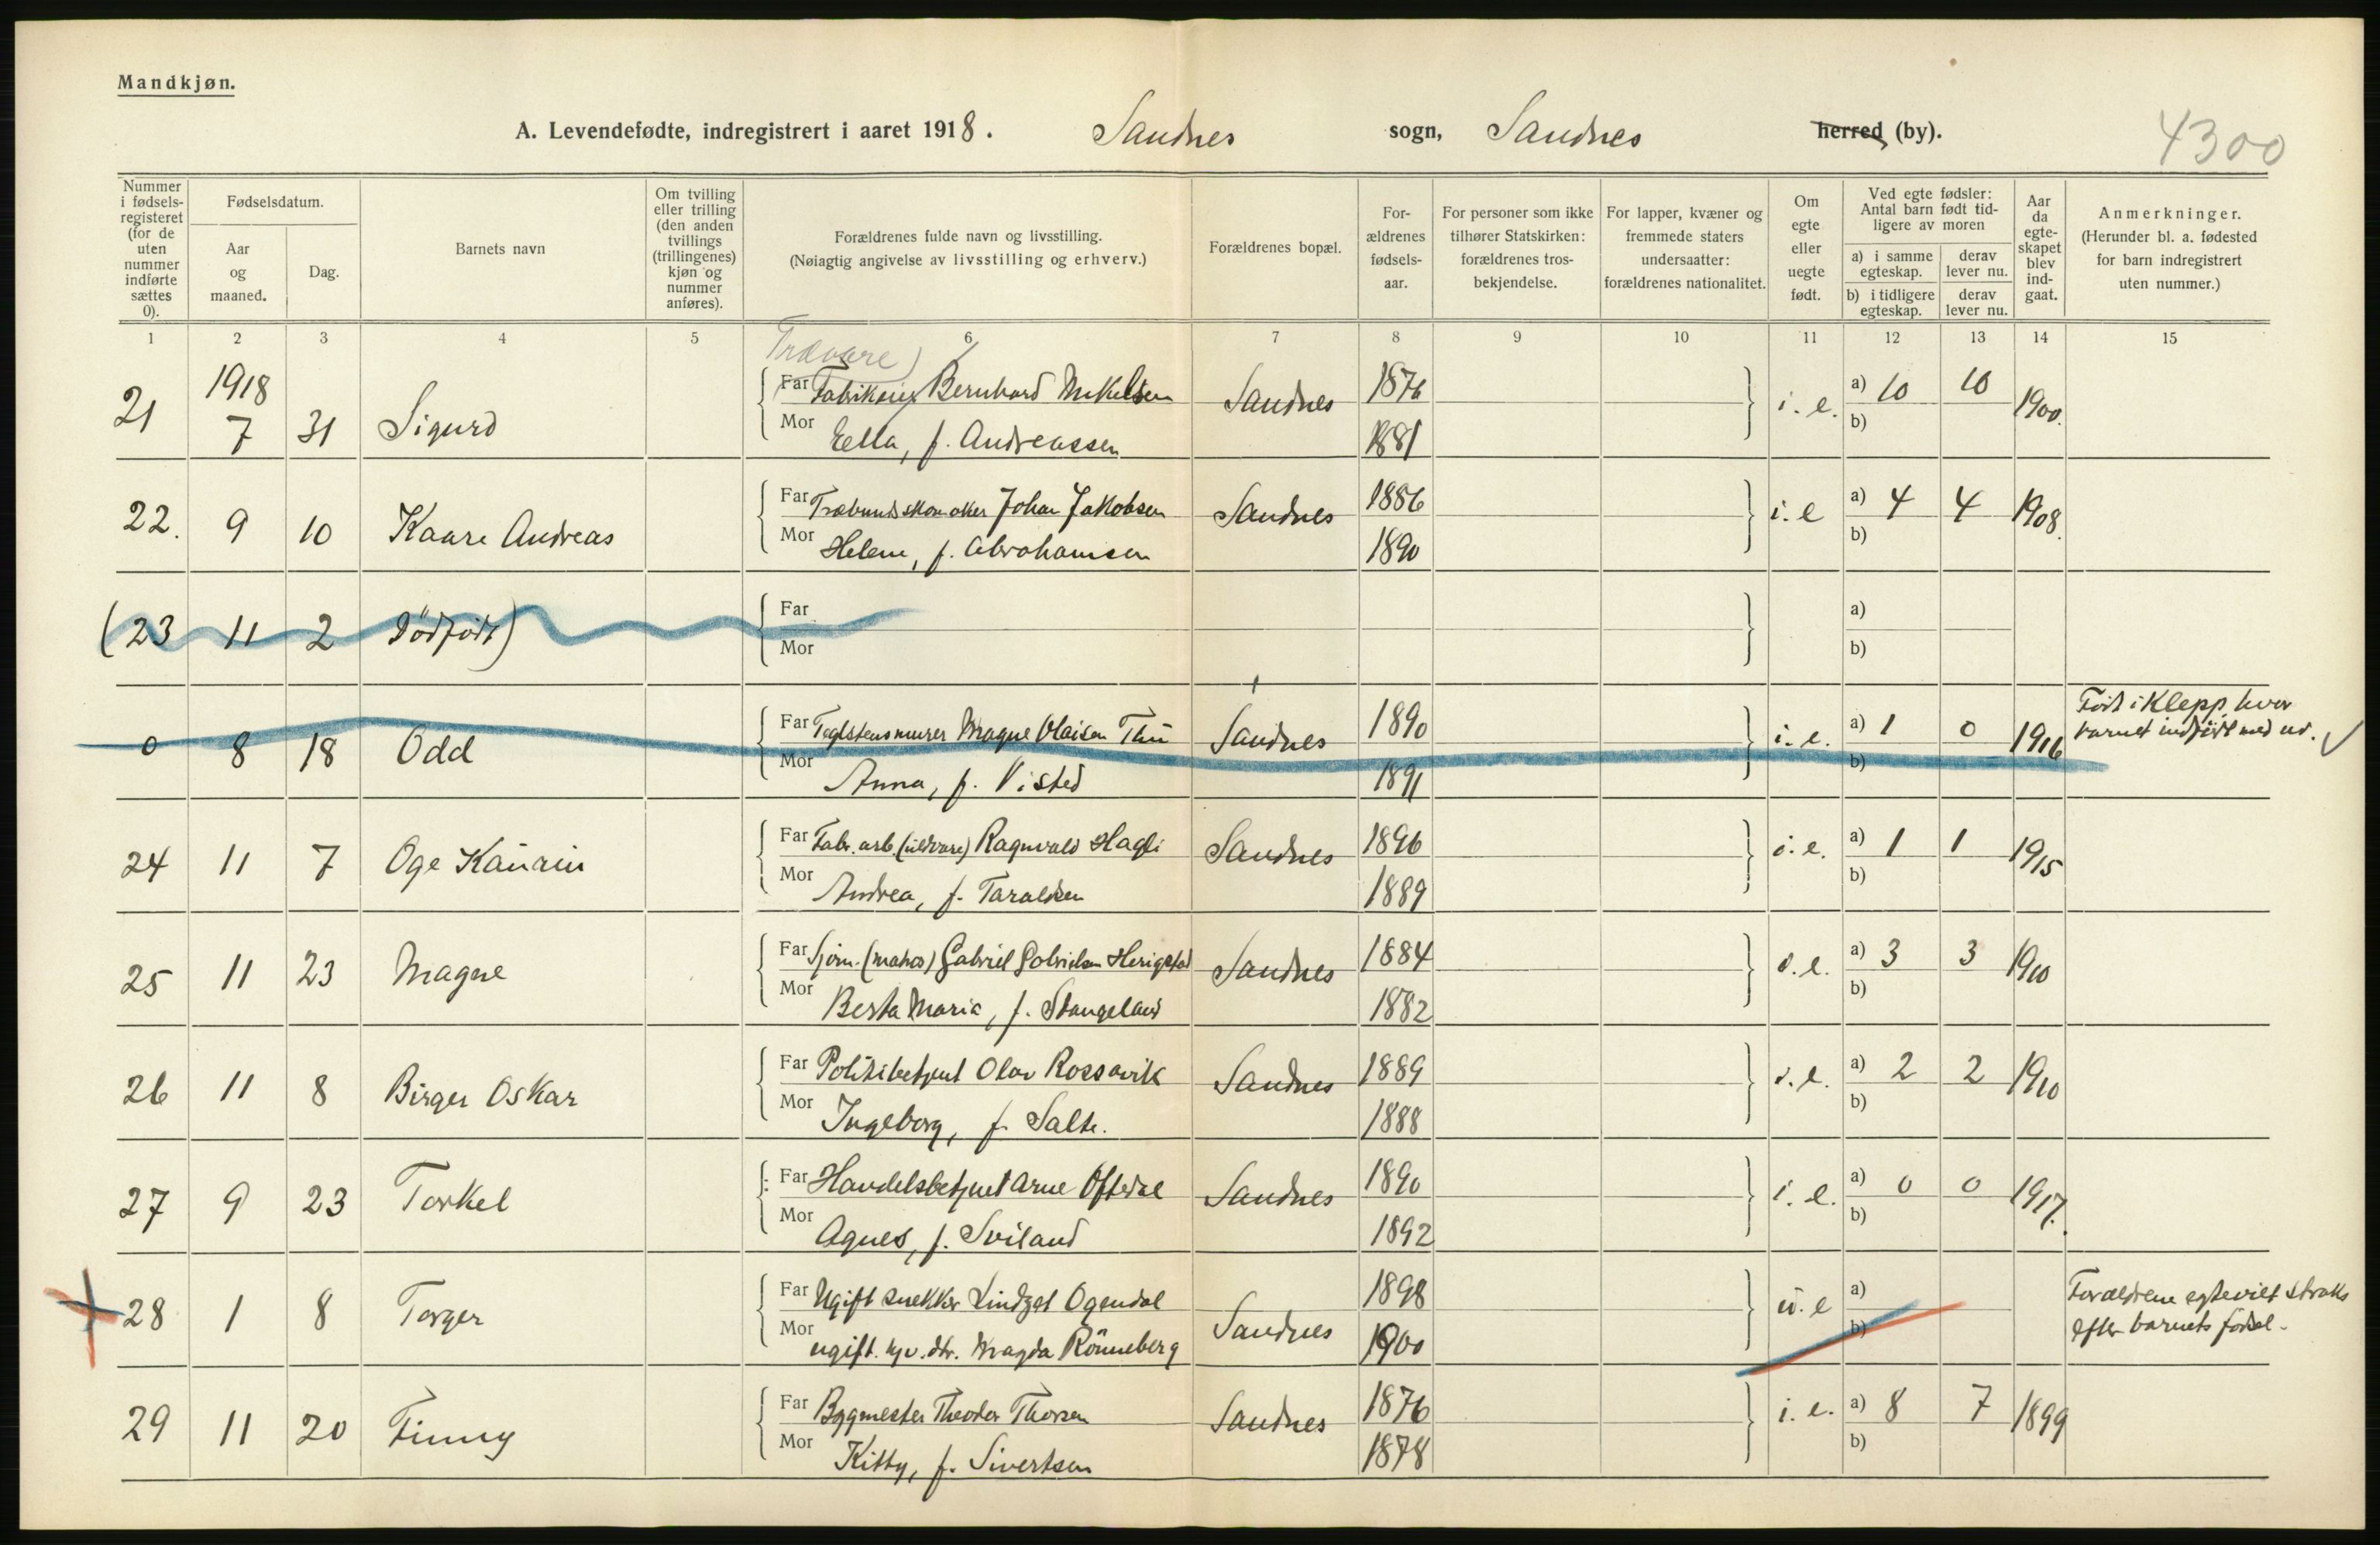 Mandkjøn.
A. Levendefødte, indregistrert i aaret 1918. Sandnes sogn, Sandnes herred (by).
4300
Nummer i fødselsregisteret (for de uten nummer indførte sættes 0).
Fødselsdatum.
Aar og maaned.
Dag.
Barnets navn
Om tvilling eller trilling (den anden tvillings (trillingenes) kjøn og nummer anføres).
Forældrenes fulde navn og livsstilling.
(Nøiagtig angivelse av livsstilling og erhverv.)
Forældrenes bopæl.
Forældrenes fødselsaar.
For personer som ikke tilhører Statskirken: forældrenes trosbekjendelse.
For lapper, kvæner og fremmede staters undersaatter: forældrenes nationalitet.
Om egte eller uegte født.
Ved egte fødsler: Antal barn født tidligere av moren
a) i samme egteskap. derav lever nu.
b) i tidligere egteskap. derav lever nu.
Aar da egteskapet blev indgaat.
Anmerkninger.
(Herunder bl. a. fødested for barn indregistrert uten nummer.)
1 2 3 4 5 6 7 8 9 10 11 12 13 14 15
Trævare)
1918
21 7 31 Sigurd Far Fabrikeier Bernhard Mikelsen Sandnes 1876 i. e. a) 10 10 1900.
Mor Ella, f. Andreassen 1881 b)
22. 9 10 Kaare Andreas Far Træbundskomaker Johan Jakobsen Sandnes 1886 i. e a) 4 4 1908.
Mor Helene, f. Abrahamsen 1890 b)
(23 11 2 Dødfødt) Far a)
Mor b)
0 8 18 Odd Far Teglstensmurer Magne Olaisen Thu Sandnes 1890 i. e. a) 1 0 1916 Født i Klepp, hvor
Mor Anna, f. Visted 1891 b) barnet indført med nr. ✓
24 11 7 Oge Kaurin Far Fabr. arb. (uldvare) Ragnvald Hagli Sandnes 1896 i. e. a) 1 1 1915
Mor Andrea, f. Taraldsen 1889 b)
25 11 23 Magne Far Sjøm. (matros) Gabriel Gabrielsen Herigstad Sandnes 1884 i. e. a) 3 3 1910
Mor Berta Maria, f. Stangeland 1882 b)
26 11 8 Birger Oskar Far Politibetjent Olav Rossavik Sandnes 1889 i. e. a) 2 2 1910
Mor Ingeborg, f. Salte. 1888 b)
27 9 23 Torkel Far Handelsbetjent Arne Oftedal Sandnes 1890 i. e. a) 0 0 1917.
Mor Agnes, f. Sviland 1892 b)
28 1 8 Torger Far Ugift snekker Lindzet Ogendal Sandnes 1898 u. e a) Forældrene egteviet straks
Mor ugift. hjv. dtr. Magda Rönneberg 1900 b) efter barnets fødsel.
29 11 20 Finny Far Bygmester Theodor Thorsen Sandnes 1876 i. e. a) 8 7 1899
Mor Kitty, f. Sivertsen 1878 b)